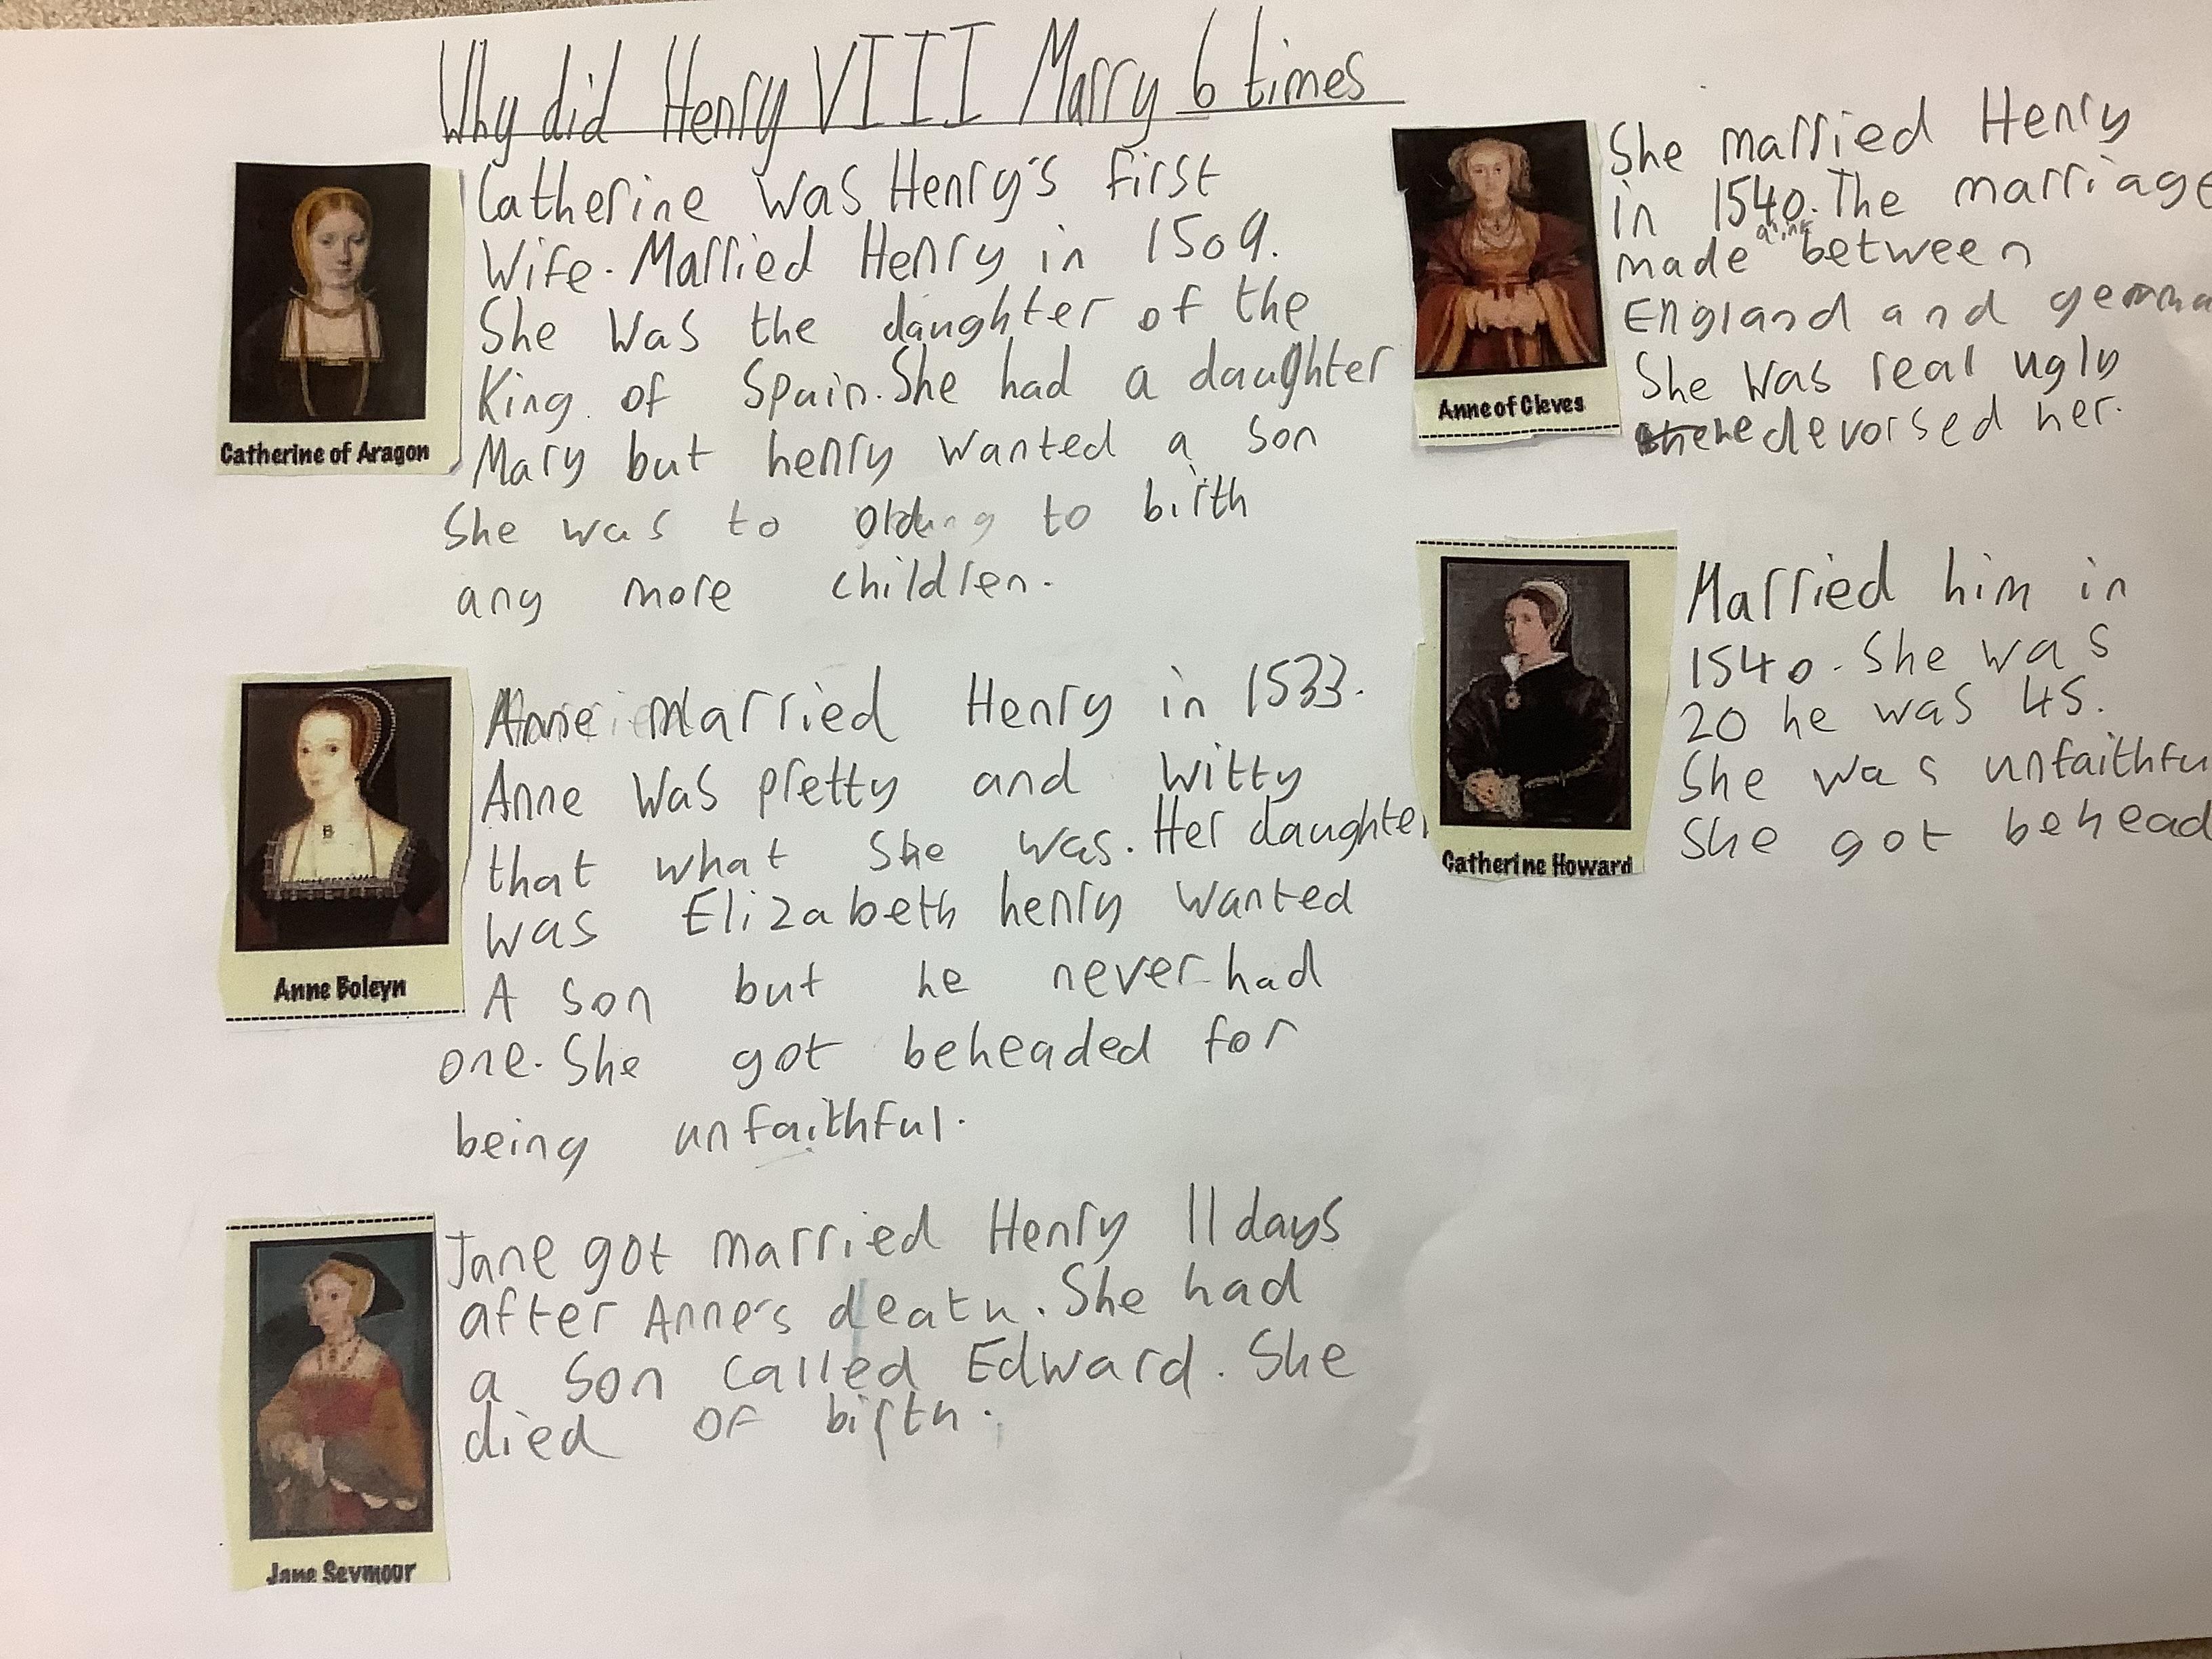 Why did Henry VIII Marry 6 times
Catherine was Henry's first
Wife. Married Henry in 1509.
She was the daughter of the
King of Spain. She had a daughter
Mary but henry wanted a son
She was to old to birth
any more children.
Catherine of Aragon
Anne married Henry in 1533.
Anne was pretty and witty
that what she was. Her daughter
was Elizabeth henry wanted
A son but he never had
one. She got beheaded for
being unfaithful.
Anne Boleyn
Jane got married Henry 11 days
after Anne's death. She had
a son called Edward. She
died of birth.
Jane Seymour
She married Henry
in 1540. The marriage
made between
England and
She was real ugly
he devorsed her.
Anne of Cleves
Married him in
1540. She was
20 he was 45.
She was unfaithfu
She got behead
Catherine Howard